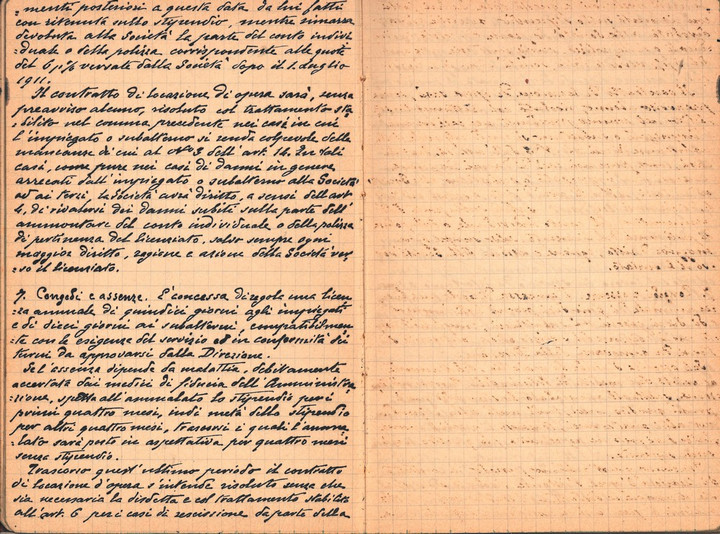 mente posteriori a questa data da lui fatti
con ritenuta sullo stipendio, mentre rimarrà
devoluta alla Società la parte del conto indivi-
duale o della polizza corrispondente alle quote
del 6,1% versate dalla Società dopo il 1. Luglio
1911.
Il contratto di locazione di opera sarà, senza
preavviso alcuno, risoluto col trattamento sta-
bilito nel comma precedente nei casi in cui
l'impiegato o subalterno si renda colpevole delle
mancanze di cui al No 3 dell'art. 14. In tali
casi, come pure nei casi di danni in genere
arrecati dall'impiegato o subalterno alla Società
od ai terzi, la Società avrà diritto, a sensi dell'art.
4, di rivalersi dei danni subiti sulla parte dell'
ammontare del conto individuale o della polizza
di pertinenza del licenziato, salvo sempre ogni
maggior diritto, ragione e azione della Società ver-
so il licenziato.
7. Congedi e assenze. È concessa di regola una licen-
za annuale di quindici giorni agli impiegati
e di dieci giorni ai subalterni, compatibilmen-
te con le esigenze del servizio ed in conformità dei
turni da approvarsi dalla Direzione.
Se l'assenza dipende da malattia, debitamente
accertata dai medici di fiducia dell'Amministra-
zione, spetta all'ammalato lo stipendio per i
primi quattro mesi, indi metà dello stipendio
per altri quattro mesi, trascorsi i quali l'amma-
lato sarà posto in aspettativa per quattro mesi
senza stipendio.
Trascorso quest'ultimo periodo il contratto
di locazione d'opera s'intende risoluto senza che
sia necessaria la disdetta e col trattamento stabilito
all'art. 6 per i casi di rescissione da parte della